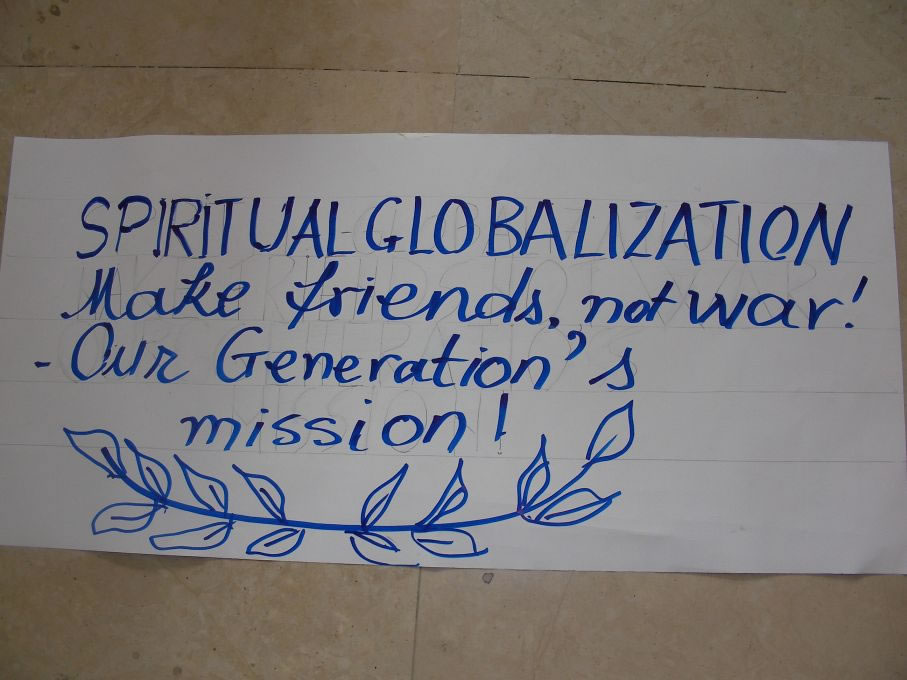 SPIRITUAL GLOBALIZATION
Make friends, not war!
- Our Generation's
mission!